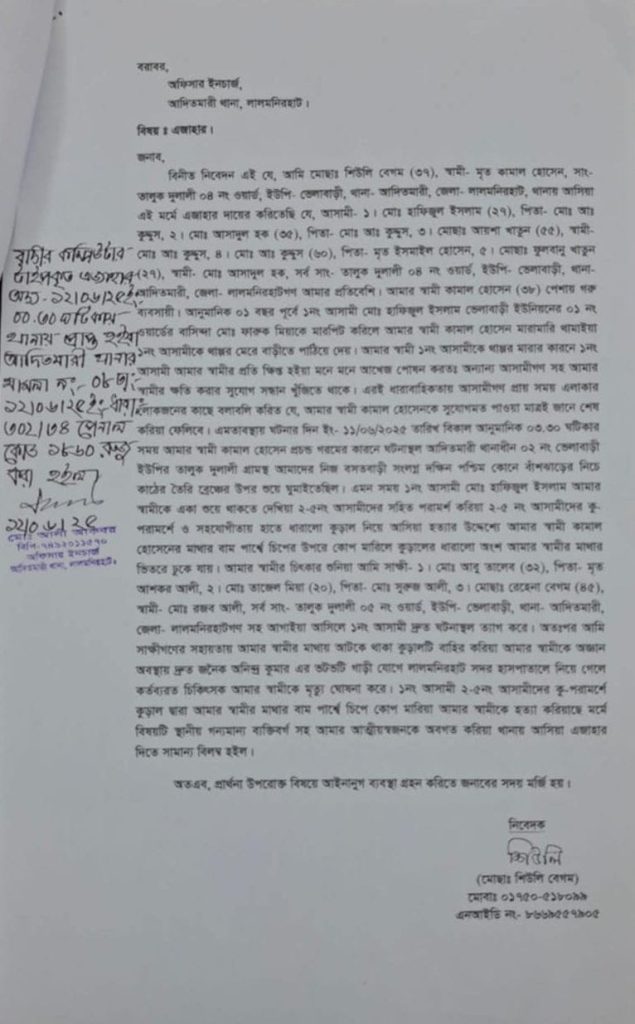 বরাবর,
অফিসার ইনচার্জ,
আদিতমারী থানা, লালমনিরহাট।
বিষয় ঃ এজাহার।
জনাব,
বিনীত নিবেদন এই যে, আমি মোছাঃ শিউলি বেগম (৩৭), স্বামী- মৃত কামাল হোসেন, সাং-
তালুক দুলালী ০৪ নং ওয়ার্ড, ইউপি- ভেলাবাড়ী, থানা- আদিতমারী, জেলা- লালমনিরহাট, থানায় আসিয়া
এই মর্মে এজাহার দায়ের করিতেছি যে, আসামী- ১। মোঃ হাফিজুল ইসলাম (২৭), পিতা- মোঃ আঃ
কুদ্দুস, ২। মোঃ আসাদুল হক (৩৫), পিতা- মোঃ আঃ কুদ্দুস, ৩। মোছাঃ আয়শা খাতুন (৫৫), স্বামী-
মোঃ আঃ কুদ্দুস, ৪। মোঃ আঃ কুদ্দুস (৬০), পিতা- মৃত ইসমাইল হোসেন, ৫। মোছাঃ ফুলবানু খাতুন
(২৭), স্বামী- মোঃ আসাদুল হক, সর্ব সাং- তালুক দুলালী ০৪ নং ওয়ার্ড, ইউপি- ভেলাবাড়ী, থানা-
আদিতমারী, জেলা- লালমনিরহাটগণ আমার প্রতিবেশি। আমার স্বামী কামাল হোসেন (৩৮) পেশায় গরু
ব্যবসায়ী। আনুমানিক ০১ বছর পূর্বে ১নং আসামী মোঃ হাফিজুল ইসলাম ভেলাবাড়ী ইউনিয়নের ০১ নং
ওয়ার্ডের বাসিন্দা মোঃ ফারুক মিয়াকে মারপিট করিলে আমার স্বামী কামাল হোসেন মারামারি থামাইয়া
১নং আসামীকে থাপ্পর মেরে বাড়ীতে পাঠিয়ে দেয়। আমার স্বামী ১নং আসামীকে থাপ্পর মারার কারনে ১নং
আসামী আমার স্বামীর প্রতি ক্ষিপ্ত হইয়া মনে মনে আখেজ পোষন করতঃ অন্যান্য আসামীগণ সহ আমার
স্বামীর ক্ষতি করার সুযোগ সন্ধান খুঁজিতে থাকে। এরই ধারাবাহিকতায় আসামীগণ প্রায় সময় এলাকার
লোকজনের কাছে বলাবলি করিত যে, আমার স্বামী কামাল হোসেনকে সুযোগমত পাওয়া মাত্রই জানে শেষ
করিয়া ফেলিবে। এমতাবস্থায় ঘটনার দিন ইং- ১১/০৬/২০২৫ তারিখ বিকাল আনুমানিক ০৩.৩০ ঘটিকার
সময় আমার স্বামী কামাল হোসেন প্রচন্ড গরমের কারনে ঘটনাস্থল আদিতমারী থানাধীন ০২ নং ভেলাবাড়ী
ইউপির তালুক দুলালী গ্রামস্থ আমাদের নিজ বসতবাড়ী সংলগ্ন দক্ষিন পশ্চিম কোনে বাঁশঝাড়ের নিচে
কাঠের তৈরি ব্রেঞ্চের উপর শুয়ে ঘুমাইতেছিল। এমন সময় ১নং আসামী মোঃ হাফিজুল ইসলাম আমার
স্বামীকে একা শুয়ে থাকতে দেখিয়া ২-৫নং আসামীদের সহিত পরামর্শ করিয়া ২-৫ নং আসামীদের কু-
পরামর্শে ও সহযোগীতায় হাতে ধারালো কুড়াল নিয়ে আসিয়া হত্যার উদ্দেশ্যে আমার স্বামী কামাল
হোসেনের মাথার বাম পার্শ্বে চিপের উপরে কোপ মারিলে কুড়ালের ধারালো অংশ আমার স্বামীর মাথার
ভিতরে ঢুকে যায়। আমার স্বামীর চিৎকার শুনিয়া আমি সাক্ষী- ১। মোঃ আবু তালেব (৩২), পিতা- মৃত
আশকর আলী, ২। মোঃ তাজেল মিয়া (২০), পিতা- মোঃ সুরুজ আলী, ৩। মোছাঃ রেহেনা বেগম (৪৫),
স্বামী- মোঃ রজব আলী, সর্ব সাং- তালুক দুলালী ০৫ নং ওয়ার্ড, ইউপি- ভেলাবাড়ী, থানা- আদিতমারী,
জেলা- লালমনিরহাটগণ সহ আগাইয়া আসিলে ১নং আসামী দ্রুত ঘটনাস্থল ত্যাগ করে। অতঃপর আমি
সাক্ষীগণের সহায়তায় আমার স্বামীর মাথায় আটকে থাকা কুড়ালটি বাহির করিয়া আমার স্বামীকে অজ্ঞান
অবস্থায় দ্রুত জনৈক অনিন্দ্র কুমার এর ভটভটি গাড়ী যোগে লালমনিরহাট সদর হাসপাতালে নিয়ে গেলে
কর্তব্যরত চিকিৎসক আমার স্বামীকে মৃত্যু ঘোষনা করে। ১নং আসামী ২-৫নং আসামীদের কু-পরামর্শে
কুড়াল দ্বারা আমার স্বামীর মাথার বাম পার্শ্বে চিপে কোপ মারিয়া আমার স্বামীকে হত্যা করিয়াছে মর্মে
বিষয়টি স্থানীয় গন্যমান্য ব্যক্তিবর্গ সহ আমার আত্মীয়স্বজনকে অবগত করিয়া থানায় আসিয়া এজাহার
দিতে সামান্য বিলম্ব হইল।
অতএব, প্রার্থনা উপরোক্ত বিষয়ে আইনানুগ ব্যবস্থা গ্রহন করিতে জনাবের সদয় মর্জি হয়।
নিবেদক
শিউলি
(মোছাঃ শিউলি বেগম)
মোবাঃ ০১৭৫০-৫১৮০৯৯
এনআইডি নং- ৮৬৬৯৫৫৭৯০৫
বাদীর কম্পিউটার
টাইপকৃত এজাহার
অদ্য- ১২/০৬/২৫ইং
০০.৩০ ঘটিকায়
থানায় প্রাপ্ত হইয়া
আদিতমারী থানার
মামলা নং- ০৮ তাং
১২/০৬/২৫ইং ধারা
৩০২/৩৪ পেনাল
কোড ১৮৬০ রুজু
করা হইল।
১২/০৬/২৫
মোঃ আলী আকবর
বিপি-৭৪৯২০১১৫৭০
অফিসার ইনচার্জ
আদিতমারী থানা, লালমনিরহাট।